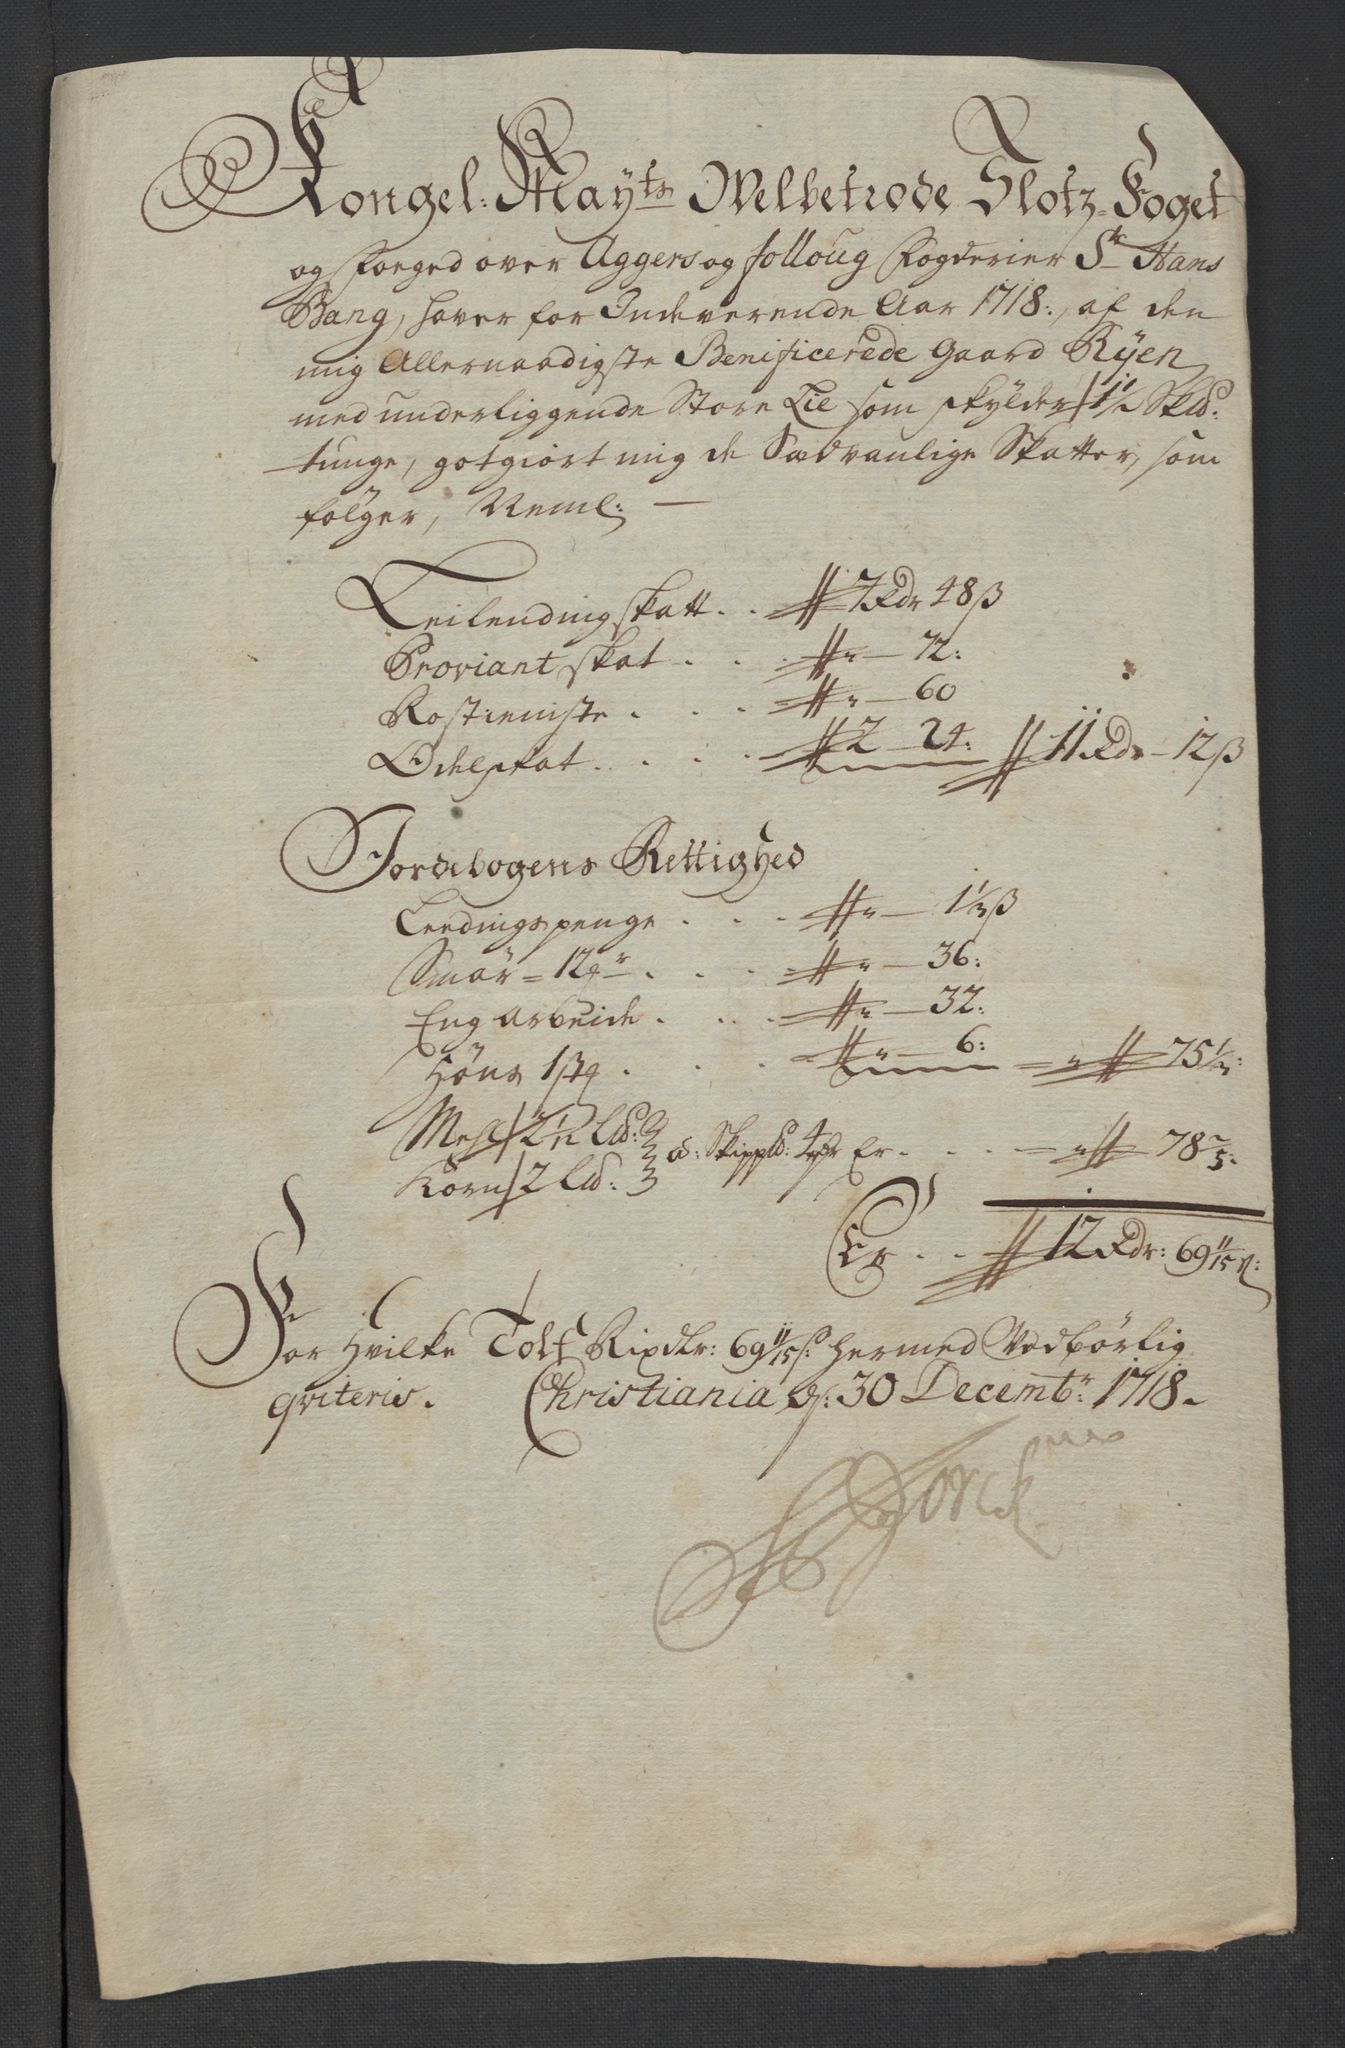 Kongel: Mayts Welbetrode Slotz-Foget
og Foeged over Aggers og folloug Fogderier Sr Hans
Bang, haver for Indeverende Aar 1718:, af den
mig Allernaadigste Benificerede Gaard Rÿen
med underliggende Store Lie som skylder 1½ Skld:
tunge, gotgiort mig de Sædvanlige Skatter, som
følger, Neml: —
Leilending skatt . . 7 Rdr 48 ß
Proviant skat . . " — 72:
Rostieniste . . . " — 60
Odelskat . . . . 2 — 24: 11 Rdr — 12 ß
Jordebogens Rettighed
Leedingspenge . . . " — 1⅓ ß
Smør = 12 . . . " — 36:
Eng Arbeide . . . . " — 32:
Höns 1 . . . " — 6: = " 75⅓:
Mehl 2½ Lld:
Korn 2 Lld: a: Skippld: 4 Er . . . . — " 78⅖:
Er . . 12 Rdr: 69 11/15 ß:
For Hvilke Tolf Rixdlr: 69 11/15 ß: hermed Vedbörlig
qviteris. Christiania d: 30 Decembr: 1718.